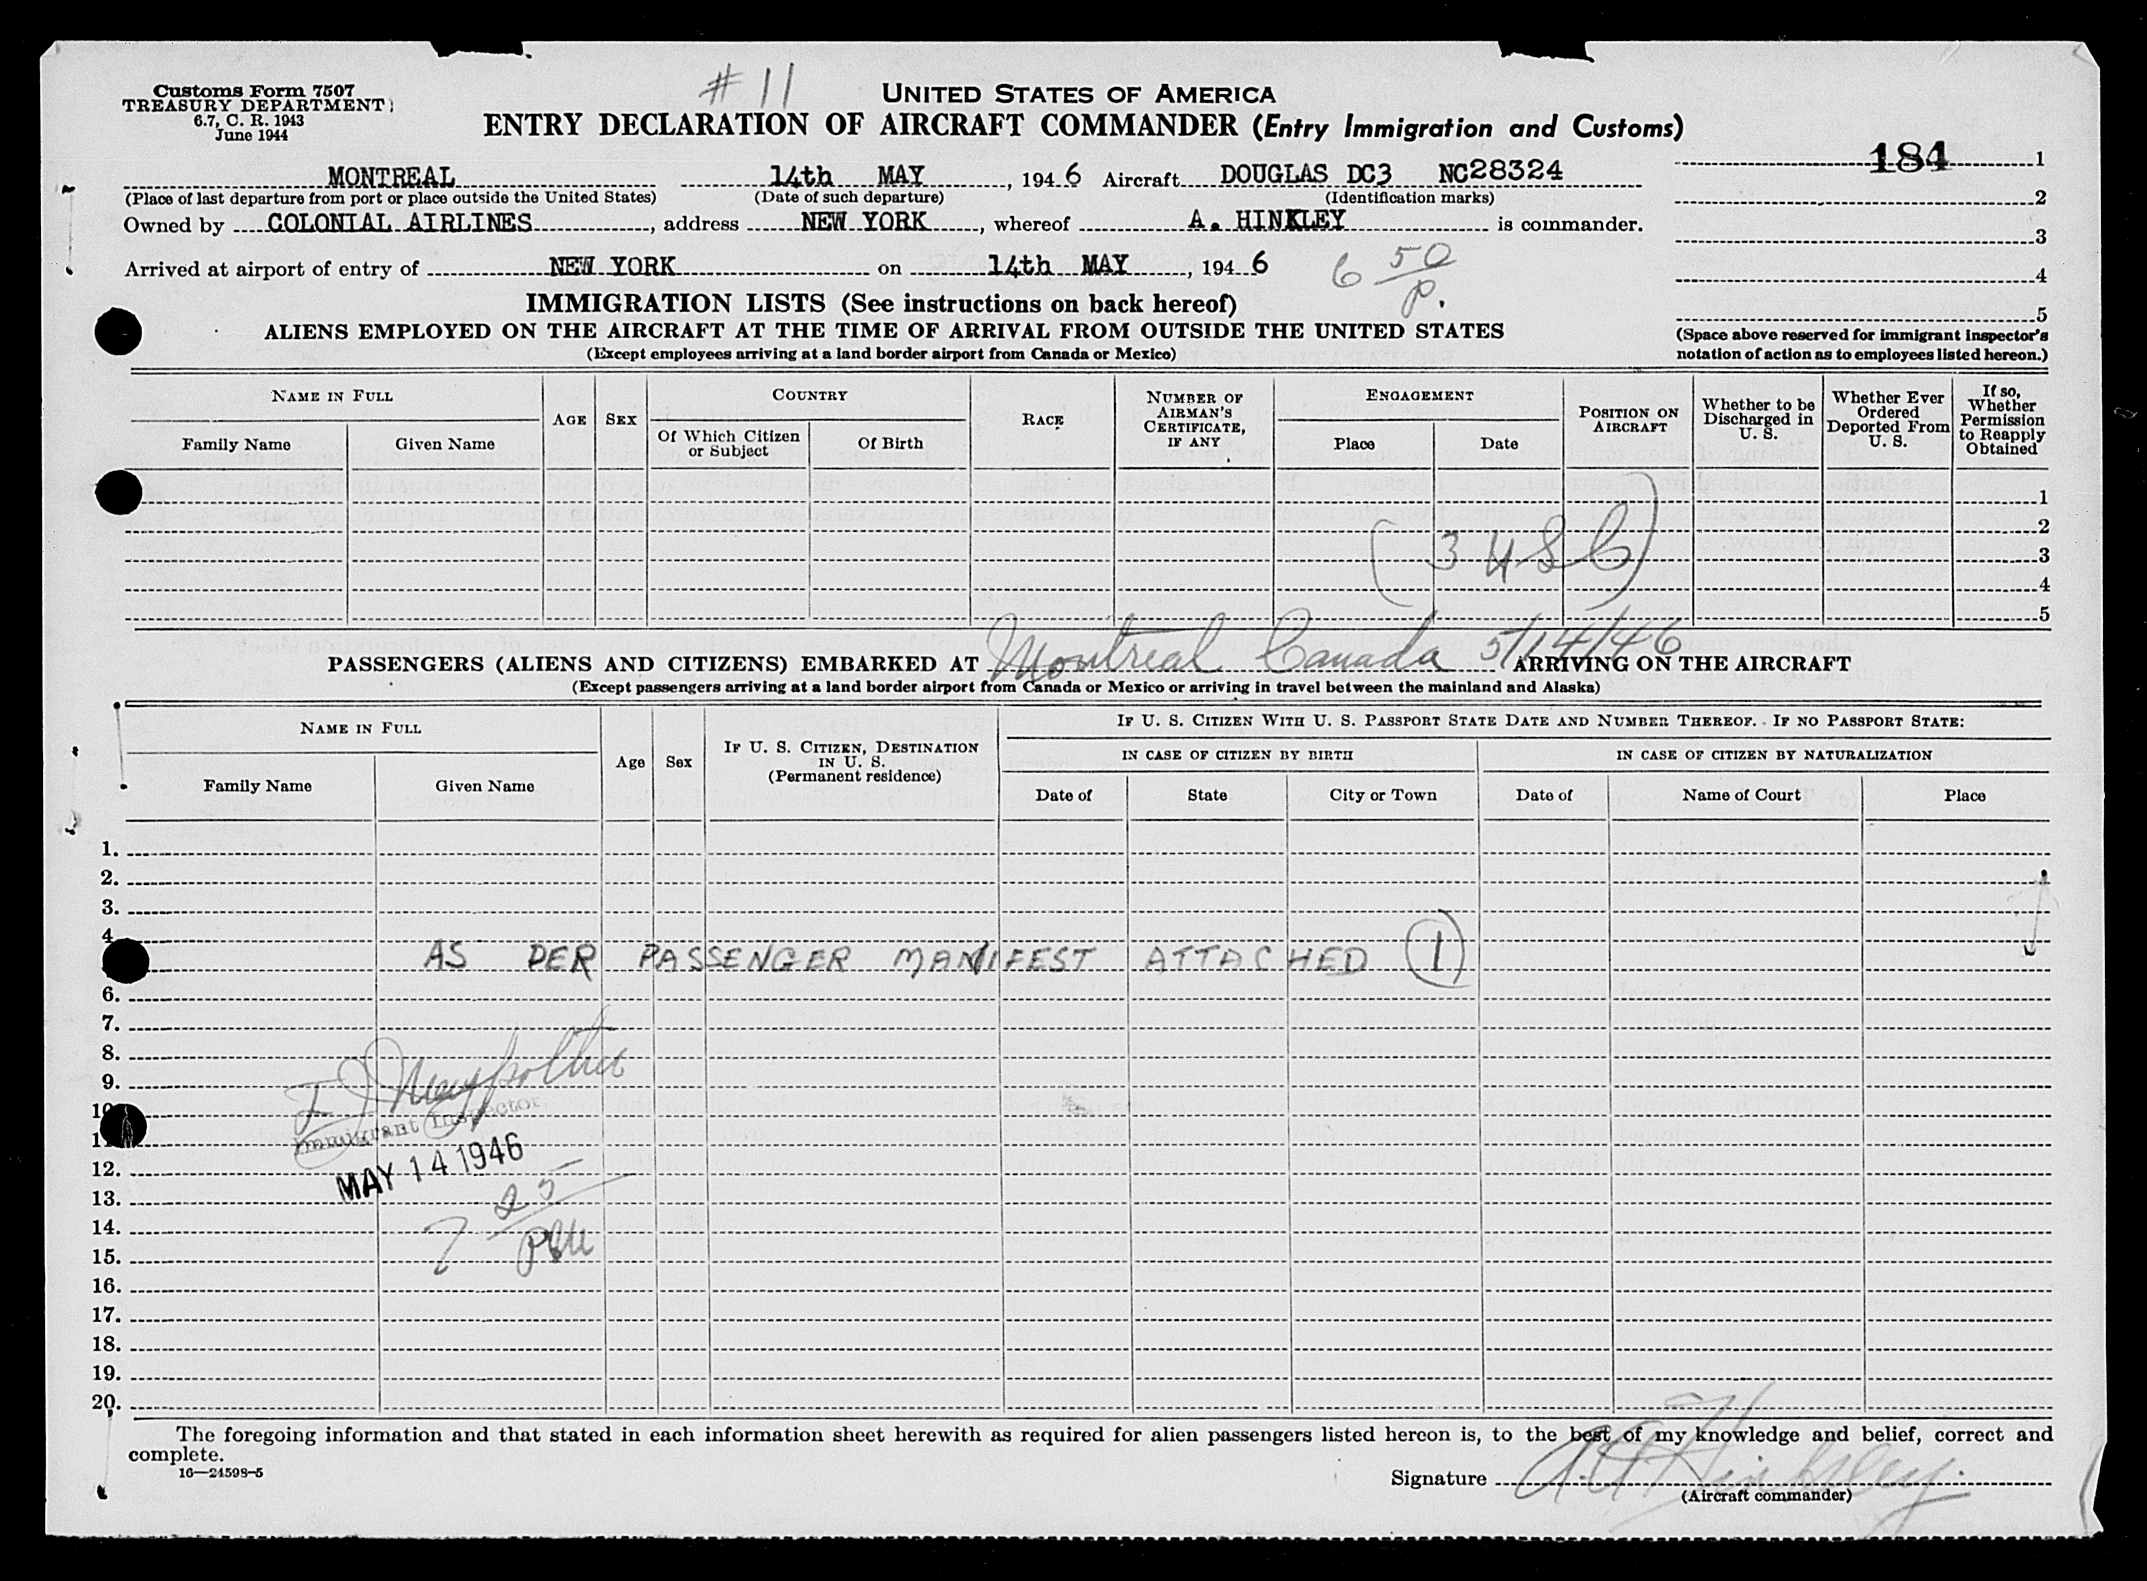 Customs Form 7507
TREASURY DEPARTMENT
6.7, C. R. 1943
June 1944
# 11
UNITED STATES OF AMERICA
ENTRY DECLARATION OF AIRCRAFT COMMANDER (Entry Immigration and Customs)
184 1
MONTREAL 14th MAY, 1946 Aircraft DOUGLAS DC3 NC28324
(Place of last departure from port or place outside the United States) (Date of such departure) (Identification marks)
2
Owned by COLONIAL AIRLINES, address NEW YORK, whereof A. HINKLEY is commander.
3
Arrived at airport of entry of NEW YORK on 14th MAY, 1946 6 50 P.
4
5
IMMIGRATION LISTS (See instructions on back hereof)
ALIENS EMPLOYED ON THE AIRCRAFT AT THE TIME OF ARRIVAL FROM OUTSIDE THE UNITED STATES
(Except employees arriving at a land border airport from Canada or Mexico)
(Space above reserved for immigrant inspector's
notation of action as to employees listed hereon.)
NAME IN FULL
Family Name
Given Name
AGE
SEX
COUNTRY
Of Which Citizen
or Subject
Of Birth
RACE
NUMBER OF
AIRMAN'S
CERTIFICATE,
IF ANY
ENGAGEMENT
Place
Date
POSITION ON
AIRCRAFT
Whether to be
Discharged in
U. S.
Whether Ever
Ordered
Deported From
U. S.
If so,
Whether
Permission
to Reapply
Obtained
1
2
(3 USC) 3
4
5
PASSENGERS (ALIENS AND CITIZENS) EMBARKED AT Montreal Canada 5/14/46 ARRIVING ON THE AIRCRAFT
(Except passengers arriving at a land border airport from Canada or Mexico or arriving in travel between the mainland and Alaska)
NAME IN FULL
Family Name
Given Name
Age
Sex
IF U. S. CITIZEN, DESTINATION
IN U. S.
(Permanent residence)
IF U. S. CITIZEN WITH U. S. PASSPORT STATE DATE AND NUMBER THEREOF. IF NO PASSPORT STATE:
IN CASE OF CITIZEN BY BIRTH
Date of
State
City or Town
IN CASE OF CITIZEN BY NATURALIZATION
Date of
Name of Court
Place
1.
2.
3.
4.
AS PER PASSENGER MANIFEST ATTACHED 1
6.
7.
8.
9.
10
Immigrant Inspector
1
12.
MAY 14 1946
13.
14.
7 25 PM
15.
16.
17.
18.
19.
20.
The foregoing information and that stated in each information sheet herewith as required for alien passengers listed hereon is, to the best of my knowledge and belief, correct and
complete.
16—24598-5
Signature A A Hinkley
(Aircraft commander)